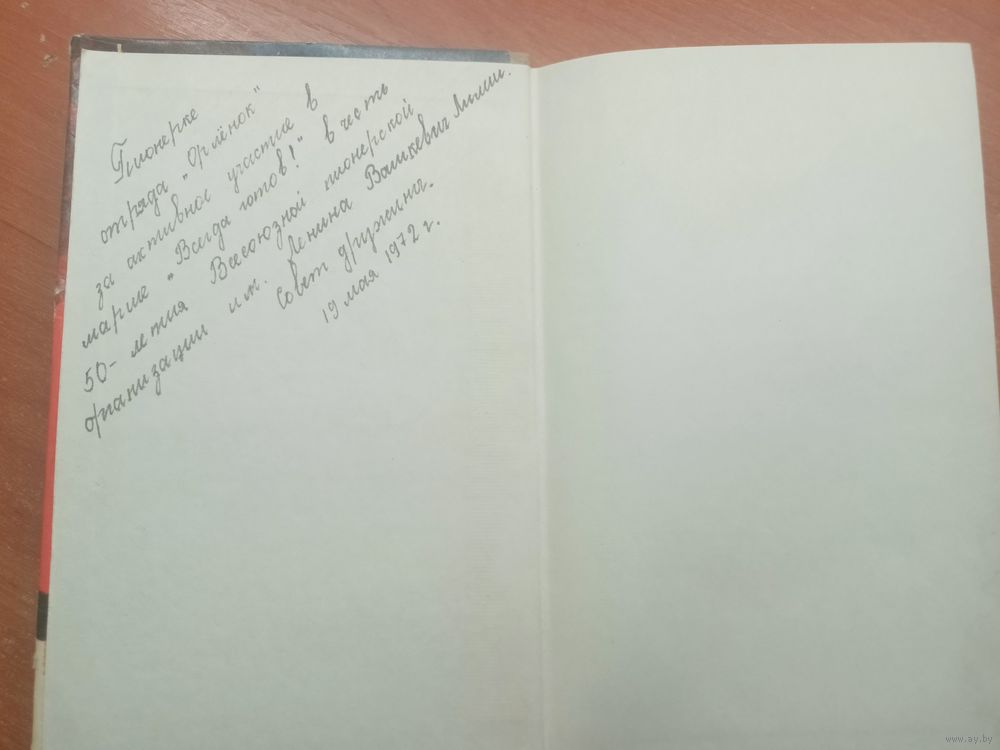 Пионерке
отряда „Орлёнок"
за активное участие в
марше „Всегда готов!" в честь
50-летия Всесоюзной пионерской
организации им. Ленина Вашкевич
Совет дружины.
19 мая 1972 г.
www.ay.by